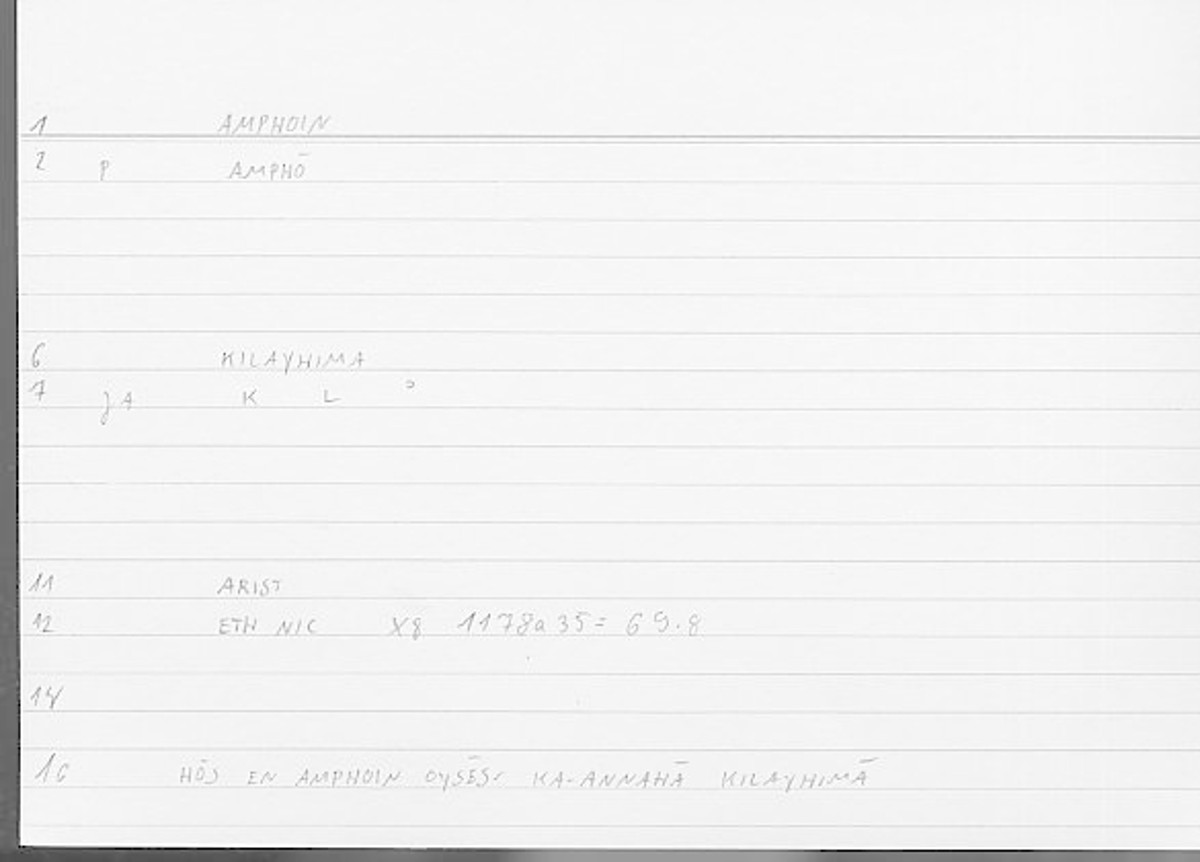 1 AMPHOIN
2 P AMPHŌ
6 KILAYHIMA
7 JA K L ↄ
11 ARIST
12 ETH NIC X8 1178a35= 69.8
14
16 HŌS EN AMPHOIN OYSĒS: KA-ANNAHĀ KILAYHIMĀ